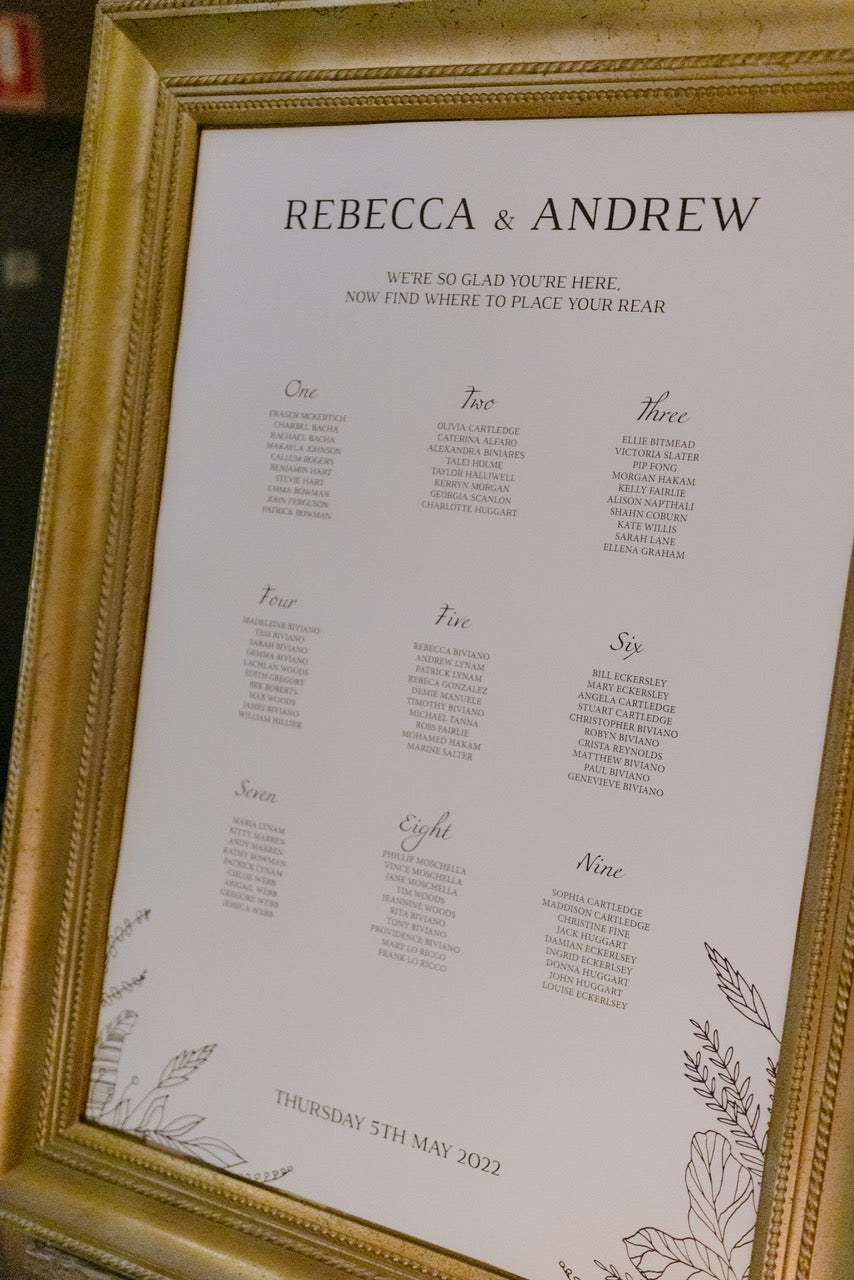 REBECCA & ANDREW
WE'RE SO GLAD YOU'RE HERE,
NOW FIND WHERE TO PLACE YOUR REAR
One
FRASER MCKERTICH
CHARBEL BACHA
RACHAEL BACHA
MAKAYLA JOHNSON
CALLUM ROGERS
BENJAMIN HART
STEVIE HART
EMMA BOWMAN
JOHN FERGUSON
PATRICK BOWMAN
Two
OLIVIA CARTLEDGE
CATERINA ALFARO
ALEXANDRA BINIARES
TALEI HOLME
TAYLOR HALLIWELL
KERRYN MORGAN
GEORGIA SCANLON
CHARLOTTE HUGGART
Three
ELLIE BITMEAD
VICTORIA SLATER
PIP FONG
MORGAN HAKAM
KELLY FAIRLIE
ALISON NAPTHALI
SHAHN COBURN
KATE WILLIS
SARAH LANE
ELLENA GRAHAM
Four
MADELEINE BIVIANO
TESS BIVIANO
SARAH BIVIANO
GEMMA BIVIANO
LACHLAN WOODS
EDITH GREGORY
BEK ROBERTS
MAX WOODS
JAMES BIVIANO
WILLIAM HILLIER
Five
REBECCA BIVIANO
ANDREW LYNAM
PATRICK LYNAM
REBECA GONZALEZ
DEMIE MANUELE
TIMOTHY BIVIANO
MICHAEL TANNA
ROSS FAIRLIE
MOHAMED HAKAM
MARINE SALTER
Six
BILL ECKERSLEY
MARY ECKERSLEY
ANGELA CARTLEDGE
STUART CARTLEDGE
CHRISTOPHER BIVIANO
ROBYN BIVIANO
CRISTA REYNOLDS
MATTHEW BIVIANO
PAUL BIVIANO
GENEVIEVE BIVIANO
Seven
MARIA LYNAM
KITTY MARREN
ANDY MARREN
KATHY BOWMAN
PATRICK LYNAM
CHLOE WEBB
ABIGAIL WEBB
GREGORY WEBB
JESSICA WEBB
Eight
PHILLIP MOSCHELLA
VINCE MOSCHELLA
JANE MOSCHELLA
TIM WOODS
JEANNINE WOODS
RITA BIVIANO
TONY BIVIANO
PROVIDENCE BIVIANO
MARY LO RICCO
FRANK LO RICCO
Nine
SOPHIA CARTLEDGE
MADDISON CARTLEDGE
CHRISTINE FINE
JACK HUGGART
DAMIAN ECKERLSEY
INGRID ECKERLSEY
DONNA HUGGART
JOHN HUGGART
LOUISE ECKERLSEY
THURSDAY 5TH MAY 2022